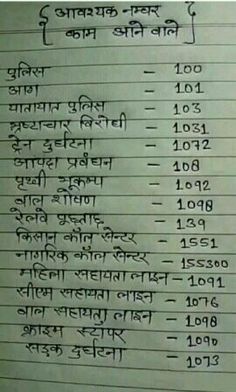 आवश्यक नम्बर
काम आने वाले
पुलिस – 100
आग – 101
यातायात पुलिस – 103
भ्रष्टाचार विरोधी – 1031
ट्रेन दुर्घटना – 1072
आपदा प्रबंधन – 108
पृथ्वी भूकम्प – 1092
बाल शोषण – 1098
रेलवे पूछताछ – 139
किसान कॉल सेन्टर – 1551
नागरिक कॉल सेन्टर – 155300
महिला सहायता लाइन – 1091
सीएम सहायता लाइन – 1076
बाल सहायता लाइन – 1098
क्राइम स्टॉपर – 1090
सड़क दुर्घटना – 1073